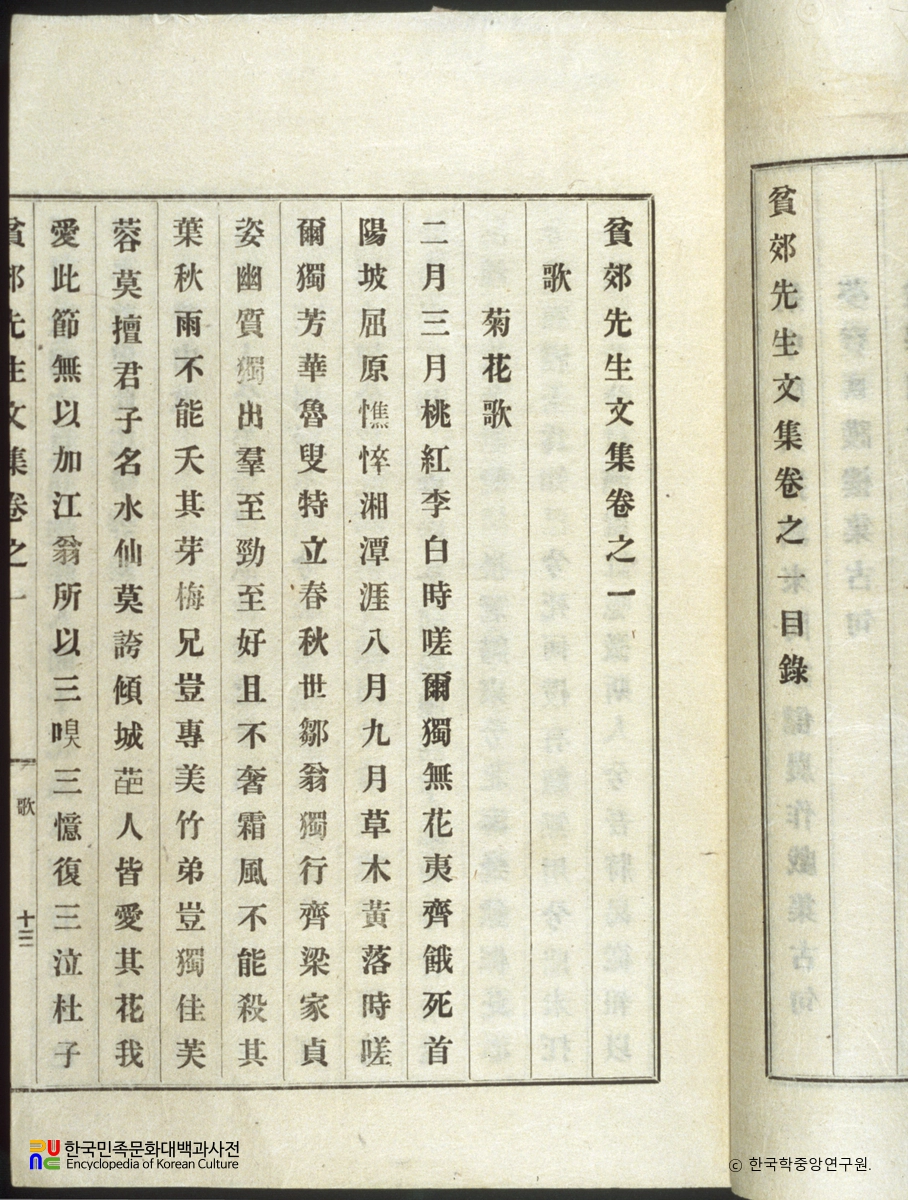 貧郊先生文集卷之一目錄
貧郊先生文集卷之一
歌
菊花歌
二月三月桃紅李白時嗟爾獨無花夷齊餓死首
陽坡屈原憔悴湘潭涯八月九月草木黃落時嗟
爾獨芳華魯叟特立春秋世鄒翁獨行齊梁家貞
姿幽質獨出羣至勁至好且不奢霜風不能殺其
葉秋雨不能夭其芽梅兄豈專美竹弟豈獨佳芙
蓉莫擅君子名水仙莫誇傾城葩人皆愛其花我
愛此節無以加江翁所以三嗅三憶復三泣杜子
貧郊先生文集卷之一
歌
十三
한국민족문화대백과사전
Encyclopedia of Korean Culture
ⓒ 한국학중앙연구원.